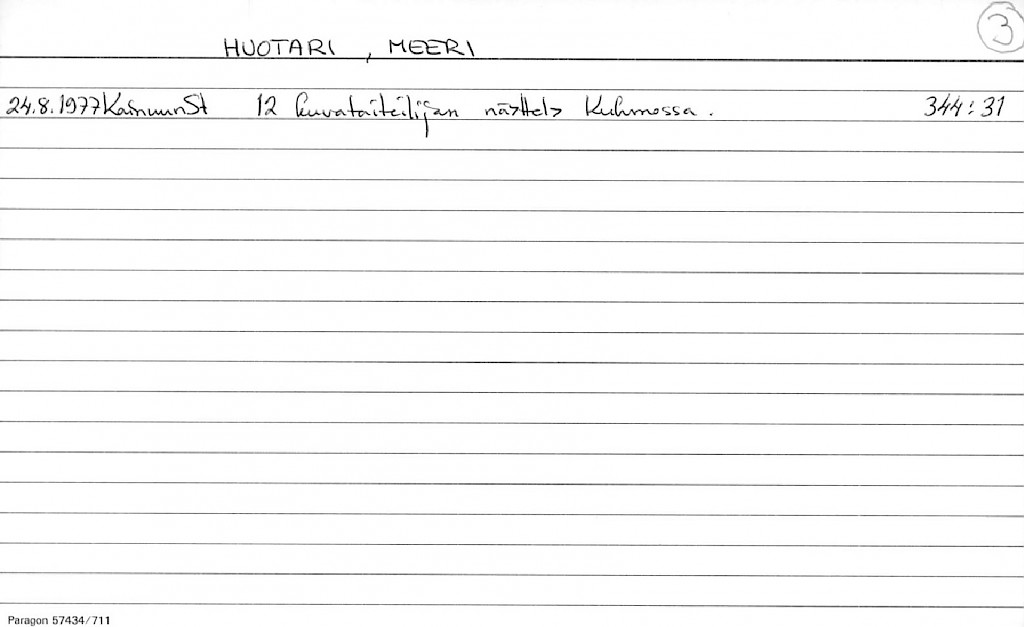 3
HUOTARI, MEERI
24.8.1977 Kainuun St 12 kuvataiteilijan näyttely Kuhmossa. 344:31
Paragon 57434/711